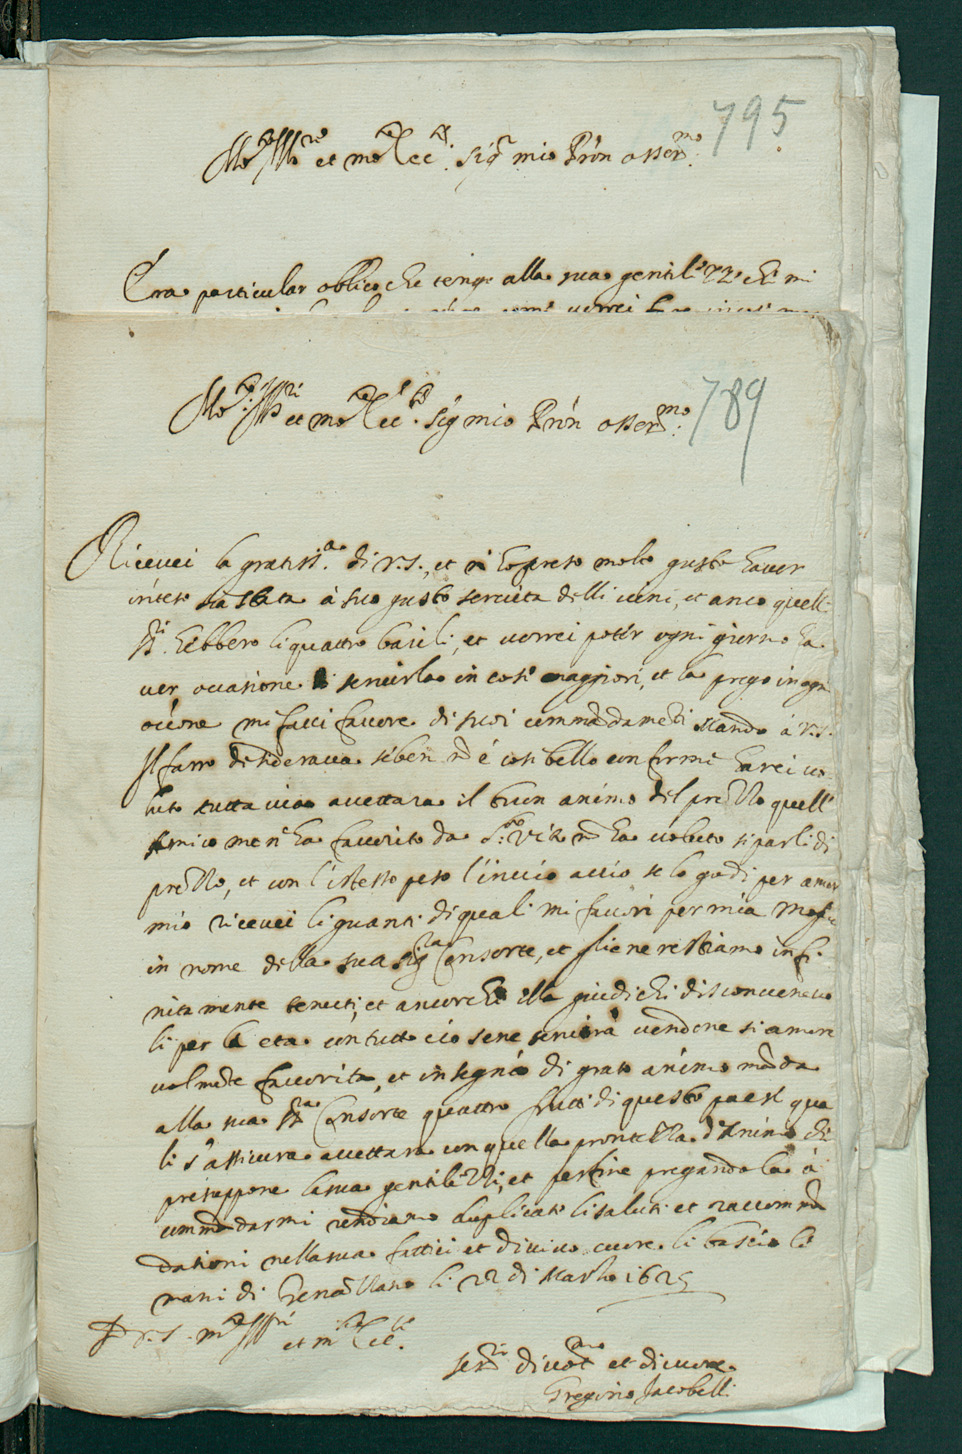 795
et mo
sig.r mio Prōn osser.mo
Era particular obligo che tengo alla sua gentilezze che mi
789
et mo
sig mio Prōn osser.mo
Ricevei la gratiss.a di v.s., et ho preso molto gusto haver
inteso sia stata à suo gusto servita delli vini, et anco quelli
hebbero li quattro barili, et vorrei poter ogni giorno ha
ver occasione di servirla in cose maggiori, et la prego in ogni
mi facci favore di suoi commādamēti mando à v.s.
Il farro desiderava seben nō é cosi bello conforme harei vo
luto tuttavia accettara il buon animo del prezzo quell'
Amico me n'ha favorito da nō ha voluto si parli di
prezzo, et con l'istesso peso l'invio accio se lo godi per amor
mio ricevei li guanti di quali mi favori per mia
in nome della sua sig.ra Consorte, et gliene restiamo infi
nitamente tenuti, et ancorche illa giudichi disconvenevo
li per la eta con tutto cio sene servirà vendone si amore
volmēte favorita, et in segno di grato animo māda
alla sua Consorte quattro frutti di questo paesi qua
li s'assicura accettara con quella prontezza d'Animo che
presuppone la sua gentilezza, et per fine pregandola à
commādarmi rendiamo duplicati li saluti et raccommā
dationi nella sua et di vivo cuore li bascio le
mani di Genazzano li 22 di Marzo 1625
D. v. S. m
et m
ser.re divot.mo et di cuore
Gregorio Jacobelli